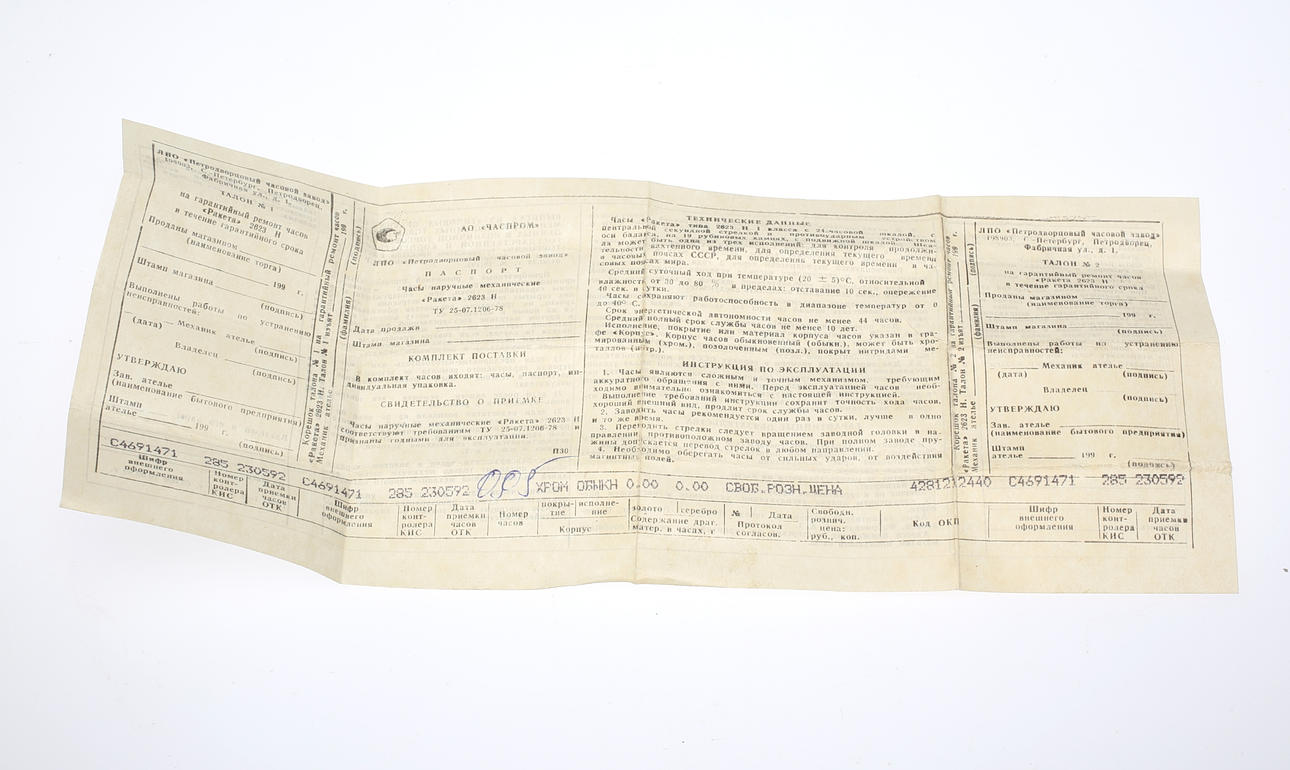 ЛПО «Петродворцовый часовой завод»
198903, С.-Петербург, Петродворец,
Фабричная ул., д. 1,
ТАЛОН № 1
на гарантийный ремонт часов
«Ракета» 2623 Н
в течение гарантийного срока
Проданы магазином
(наименование торга)
199 г.
Штамп магазина
(подпись)
Выполнены работы по устранению
неисправностей:
Механик ателье
(дата) (подпись)
Владелец
(подпись)
УТВЕРЖДАЮ
Зав. ателье
(наименование бытового предприятия)
Штамп
ателье 199 г.
(подпись)
С4691471 285 230592
Шифр
внешнего
оформления
Номер
конт-
ролера
КИС
Дата
приемки
часов
ОТК
Корешок талона № 1 на гарантийный ремонт часов
«Ракета» 2623 Н. Талон № 1 изъят 199 г.
Механик ателье
(фамилия) (подпись)
АО «ЧАСПРОМ»
ЛПО «Петродворцовый часовой завод»
ПАСПОРТ
Часы наручные механические
«Ракета» 2623 Н
ТУ 25-07.1206-78
Дата продажи
Штамп магазина
КОМПЛЕКТ ПОСТАВКИ
В комплект часов входят: часы, паспорт, ин-
дивидуальная упаковка.
СВИДЕТЕЛЬСТВО О ПРИЕМКЕ
Часы наручные механические «Ракета» 2623 Н
соответствуют требованиям ТУ 25-07.1206-78 и
признаны годными для эксплуатации.
П30
ТЕХНИЧЕСКИЕ ДАННЫЕ
Часы «Ракета» типа 2623 Н 1 класса с 24-часовой шкалой, с
центральной секундной стрелкой и противоударным устройством
оси баланса, на 19 рубиновых камнях, с подвижной шкалой. Шка-
ла может быть одна из трех исполнений: для контроля продолжи-
тельности вахтенного времени, для определения текущего времени
в часовых поясах СССР, для определения текущего времени в ча-
совых поясах мира.
Средний суточный ход при температуре (20 ± 5)°С, относительной
влажности от 30 до 80 % в пределах: отставание 10 сек., опережение
40 сек. в сутки.
Часы сохраняют работоспособность в диапазоне температур от 0
до 40° С.
Срок энергетической автономности часов не менее 44 часов.
Средний полный срок службы часов не менее 10 лет.
Исполнение, покрытие или материал корпуса часов указан в гра-
фе «Корпус». Корпус часов обыкновенный (обыкн.), может быть хро-
мированным (хром.), позолоченным (позл.), покрыт нитридами ме-
таллов (нитр.).
ИНСТРУКЦИЯ ПО ЭКСПЛУАТАЦИИ
1. Часы являются сложным и точным механизмом, требующим
аккуратного обращения с ними. Перед эксплуатацией часов необ-
ходимо внимательно ознакомиться с настоящей инструкцией.
Выполнение требований инструкции сохранит точность хода часов,
хороший внешний вид, продлит срок службы часов.
2. Заводить часы рекомендуется один раз в сутки, лучше в одно
и то же время.
3. Переводить стрелки следует вращением заводной головки в на-
правлении, противоположном заводу часов. При полном заводе пру-
жины допускается перевод стрелок в любом направлении.
4. Необходимо оберегать часы от сильных ударов, от воздействия
магнитных полей.
С4691471 285 230592 095 ХРОМ ОБЫКН 0.00 0.00 СВОБ.РОЗН.ЦЕНА 4281212440
Шифр
внешнего
оформления
Номер
конт-
ролера
КИС
Дата
приемки
часов
ОТК
Номер
часов
покры-
тие
исполне-
ние
Корпус
золото серебро
Содержание драг.
матер. в часах, г
№ Дата
Протокол
согласов.
Свободн.
рознич.
цена:
руб., коп.
Код ОКП
Корешок талона № 2 на гарантийный ремонт часов
«Ракета» 2623 Н. Талон № 2 изъят 199 г.
Механик ателье
(фамилия) (подпись)
ЛПО «Петродворцовый часовой завод»
198903, С.-Петербург, Петродворец,
Фабричная ул., д. 1,
ТАЛОН № 2
на гарантийный ремонт часов
«Ракета» 2623 Н
в течение гарантийного срока
Проданы магазином
(наименование торга)
199 г.
Штамп магазина
(подпись)
Выполнены работы по устранению
неисправностей:
Механик ателье
(дата) (подпись)
Владелец
(подпись)
УТВЕРЖДАЮ
Зав. ателье
(наименование бытового предприятия)
Штамп
ателье 199 г.
(подпись)
С4691471 285 230592
Шифр
внешнего
оформления
Номер
конт-
ролера
КИС
Дата
приемки
часов
ОТК